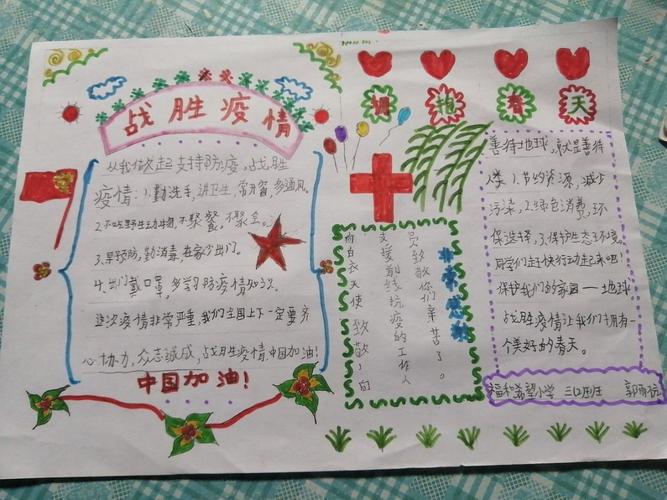 战胜疫情
从我做起支持防疫,战胜
疫情:1.勤洗手,讲卫生,常开窗,多通风。
2.不吃野生动物,不聚餐,不聚会。
3.早预防,勤消毒,在家少出门。
4.出门戴口罩,多学习防疫情知识。
这次疫情非常严重,我们全国上下一定要齐
心协力,众志诚成,战胜疫情,中国加油!
中国加油!
拥抱春天
向白衣天使致敬!向
支援前线抗疫的工作人
员致敬你们辛苦了。
非常感谢
善待地球,就是善待
人类.1.节约资源,减少
污染,2.绿色消费,环
保选择,3.保护生态环境。
同学们赶快行动起来吧!
保护我们的家园一地球
战胜疫情让我们拥有一
个美好的春天。
福和希望小学 三(2)班 郭雨